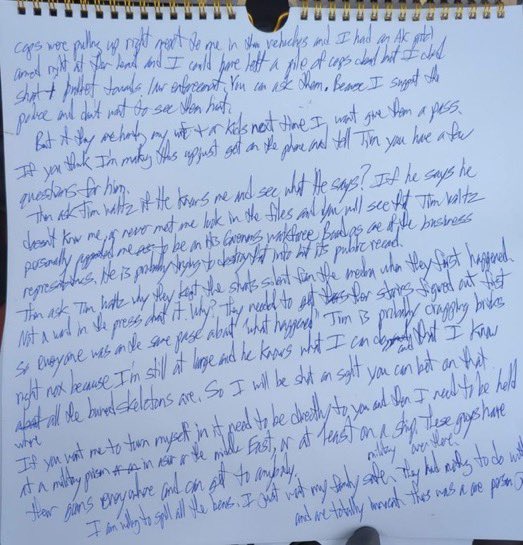 cops were pulling up right next to me in their vehicles and I had an AK pistol
aimed right at their head and I could have left a pile of cops dead but I
shot bullet towards law enforcement. You can ask them. Because I support the
police and don't want to see them hurt.
But if they are hurting my wife or kids next time I wont give them a pass.
If you think I'm making this up just get on the phone and tell Tim you have a few
questions for him.
Then ask Tim waltz if He knows me and see what He says? If he says he
doesn't know me, or never met me look in the files and you will see that Tim waltz
personally me to be on His Governors workforce Board as one of the business
representatives. He is probably trying to destroy that info but its public record.
Then ask Tim waltz why they kept the shots silent from the media when they first happened.
Not a word in the press about it. Why? They needed to get their stories figured out first
so everyone was on the same page about "what happened" Tim is probably bricks
right now because I'm still at large and he knows what I can and that I know
where all the buried skeletons are. So I will be shot on sight you can bet on that.
If you want me to turn myself in it need to be directly to you and then I need to be held
at a military prison in or the middle East, or at least on a ship. These guys have
their goons everywhere and can get to anybody. military over there.
I am willing to spill all the beans. I just want my family safe. They had nothing to do with
and are totally innocent. this was a one person